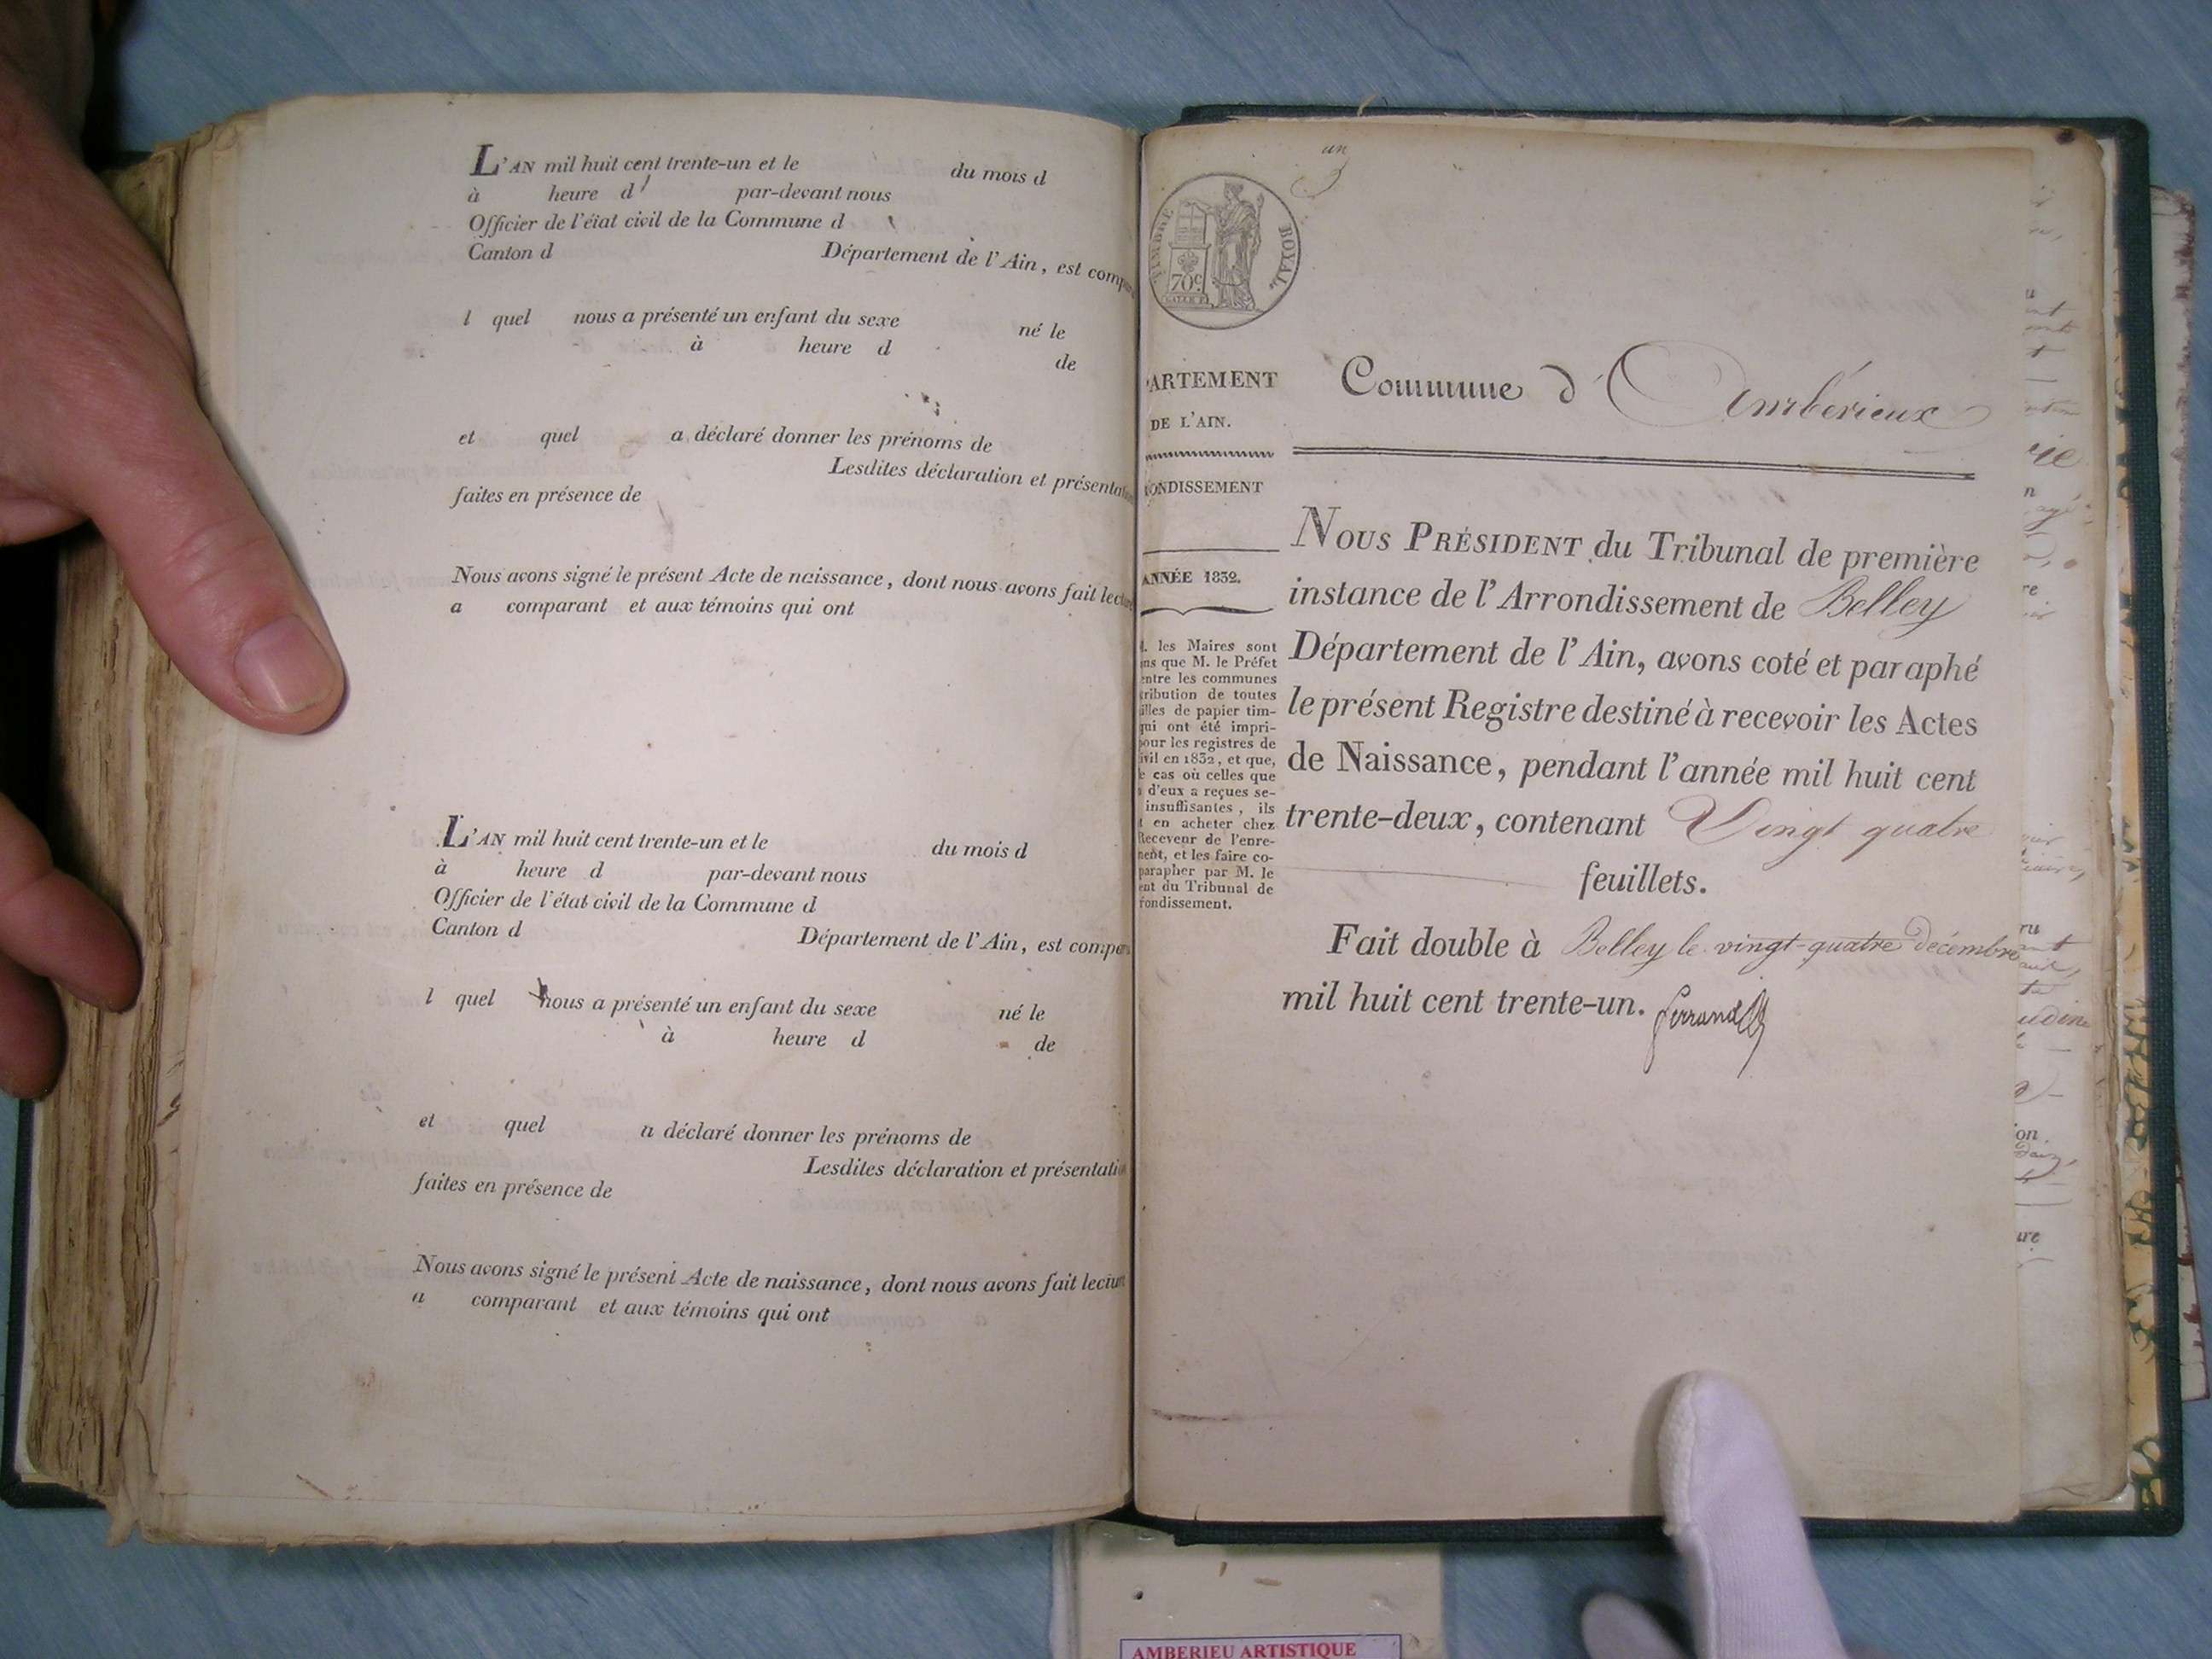 L'AN mil huit cent trente-un et le du mois d
à heure d par-devant nous
Officier de l'état civil de la Commune d
Canton d Département de l'Ain, est compa
l quel nous a présenté un enfant du sexe né le
à heure d de
et quel a déclaré donner les prénoms de
Lesdites déclaration et présentation
faites en présence de
Nous avons signé le présent Acte de naissance, dont nous avons fait lecture
a comparant et aux témoins qui ont
L'AN mil huit cent trente-un et le du mois d
à heure d par-devant nous
Officier de l'état civil de la Commune d
Canton d Département de l'Ain, est compa
l quel nous a présenté un enfant du sexe né le
à heure d de
et quel a déclaré donner les prénoms de
Lesdites déclaration et présentatio
faites en présence de
Nous avons signé le présent Acte de naissance, dont nous avons fait lectur
a comparant et aux témoins qui ont
un
TIMBRE ROYAL
70c
ARTEMENT
DE L'AIN.
ONDISSEMENT
ANNÉE 1832.
les Maires sont
ns que M. le Préfet
entre les communes
tribution de toutes
illes de papier tim-
qui ont été impri-
pour les registres de
ivil en 1832, et que,
e cas où celles que
d'eux a reçues se-
insuffisantes, ils
t en acheter chez
Receveur de l'enre-
ment, et les faire co-
parapher par M. le
ent du Tribunal de
rondissement.
Commune d'Ambérieux
NOUS PRÉSIDENT du Tribunal de première
instance de l'Arrondissement de Belley
Département de l'Ain, avons coté et paraphé
le présent Registre destiné à recevoir les Actes
de Naissance, pendant l'année mil huit cent
trente-deux, contenant Vingt quatre
feuillets.
Fait double à Belley le vingt-quatre décembre
mil huit cent trente-un. Ferrand
AMBERIEU ARTISTIQUE